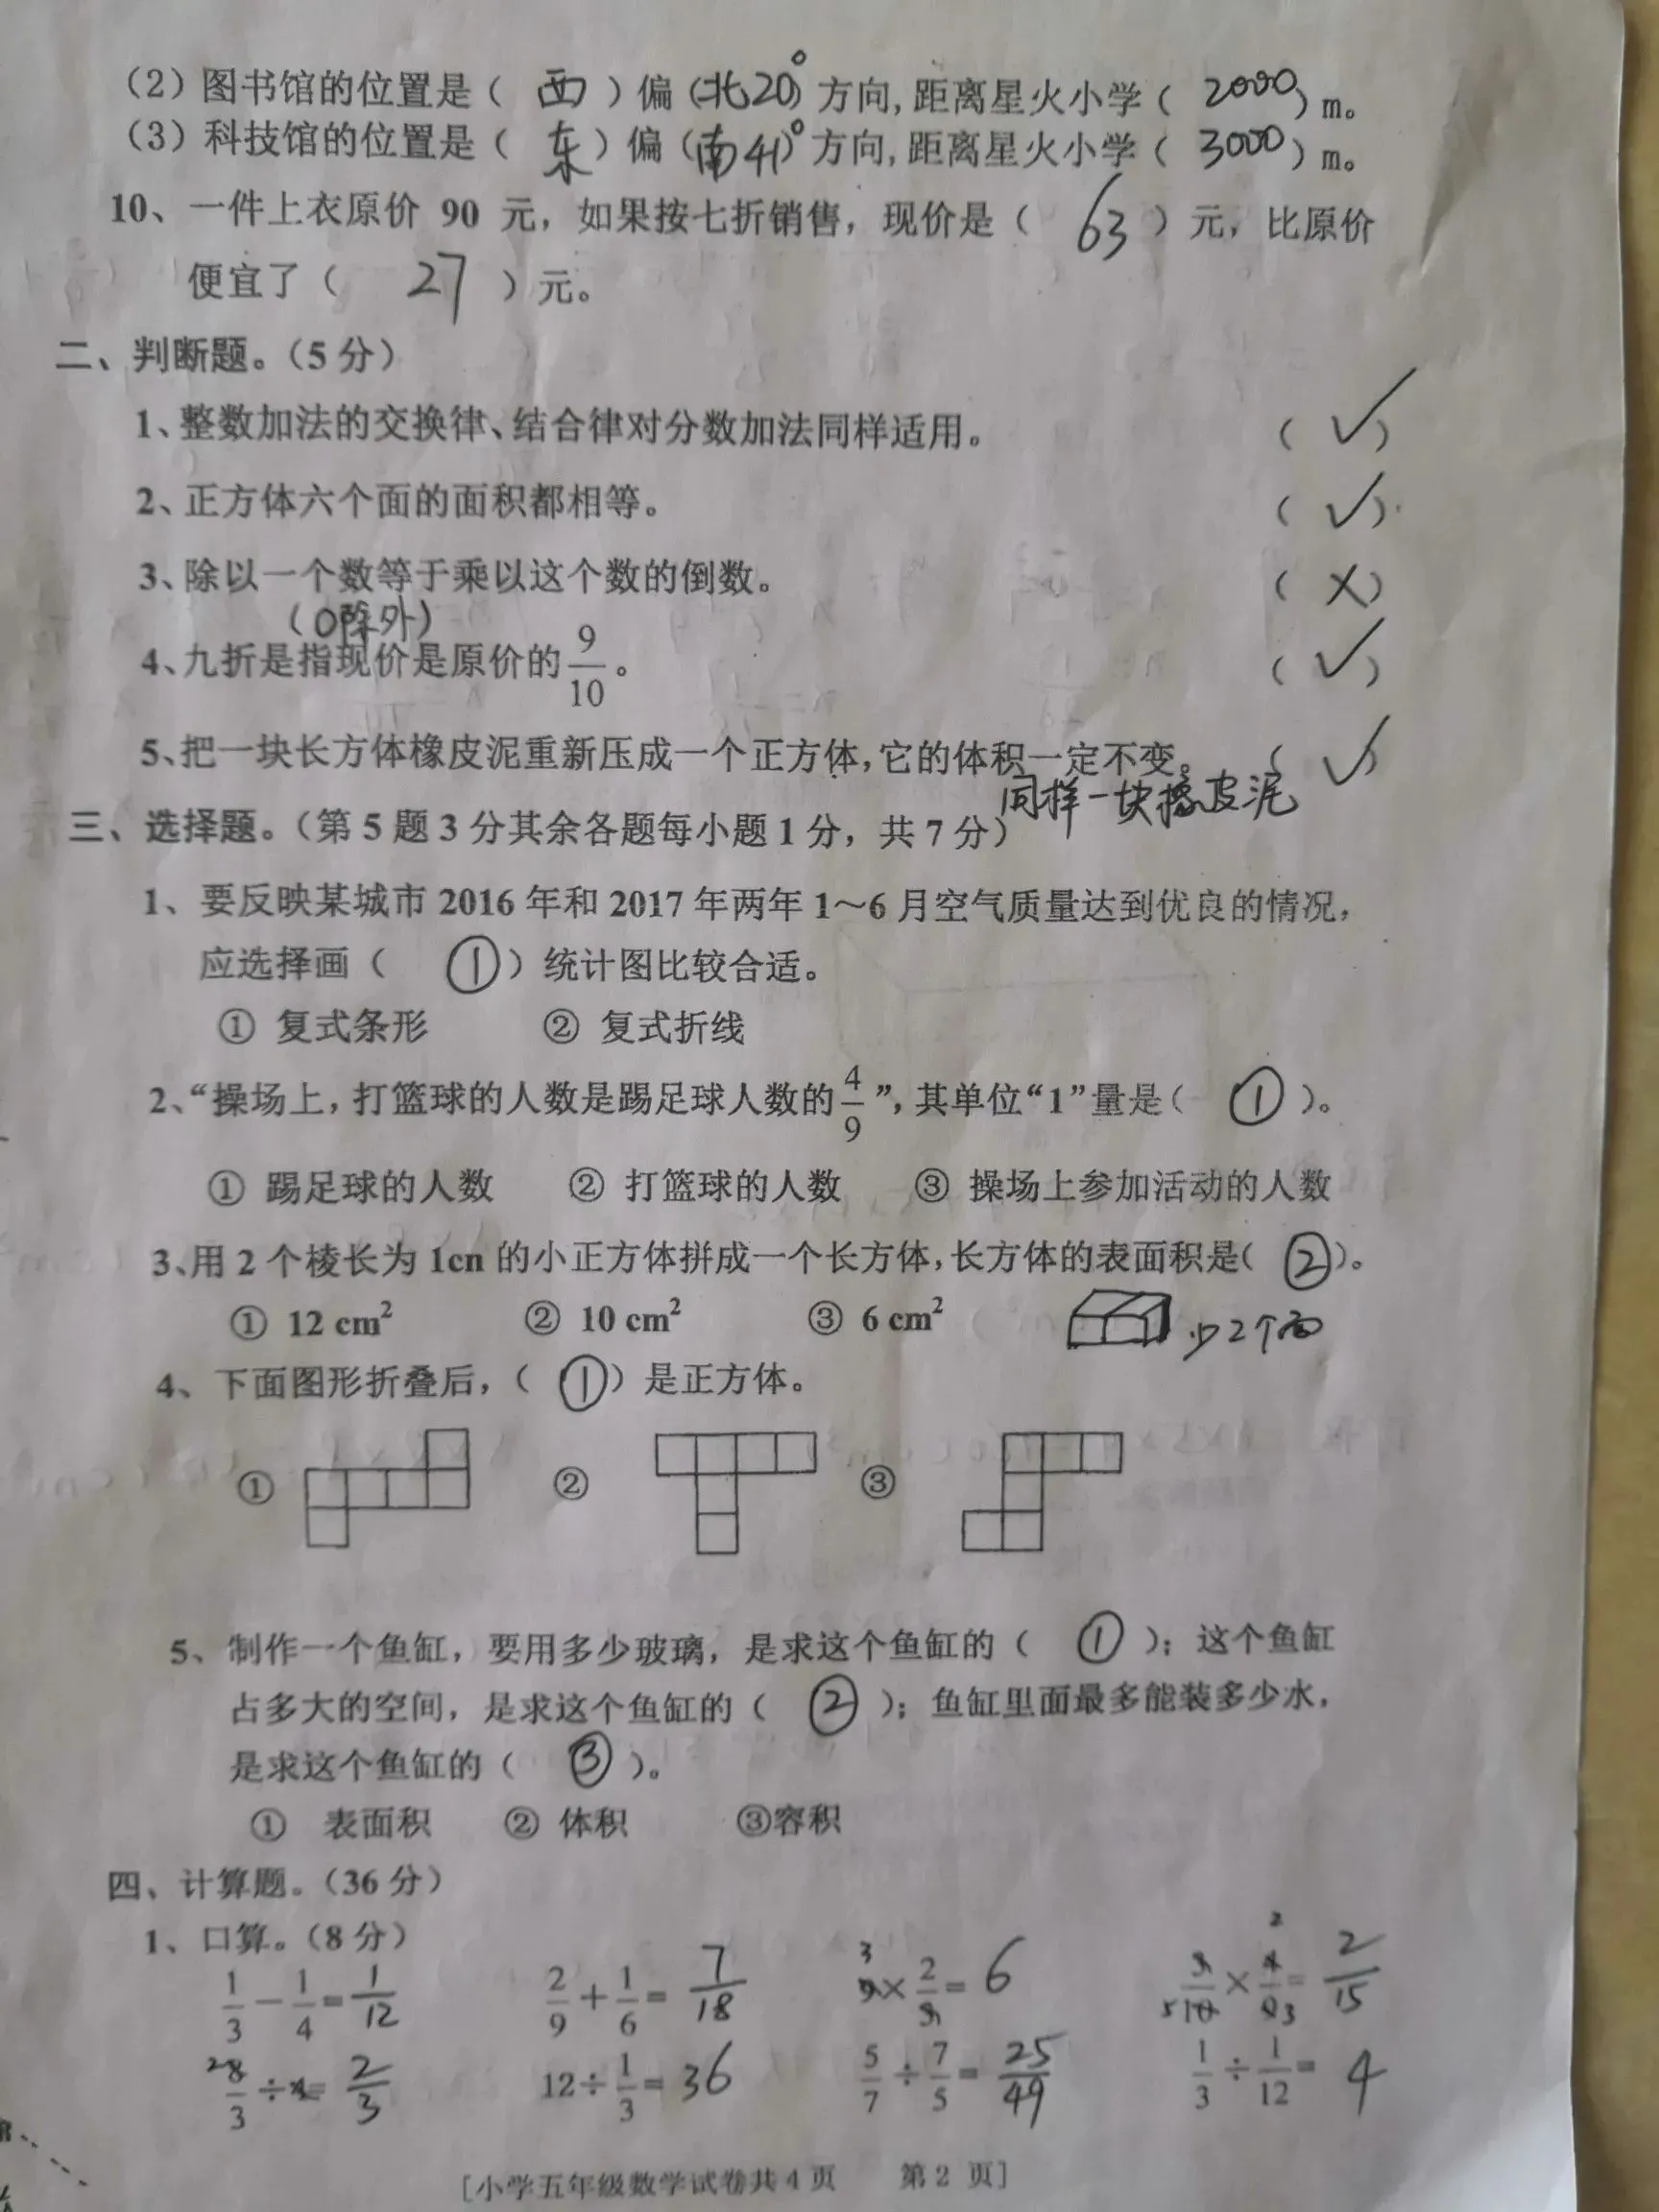 (2)图书馆的位置是( 西 )偏(北20°)方向,距离星火小学( 2000 )m。
(3)科技馆的位置是( 东 )偏(南41°)方向,距离星火小学( 3000 )m。
10、一件上衣原价 90 元,如果按七折销售,现价是( 63 )元,比原价
便宜了( 27 )元。
二、判断题。(5分)
1、整数加法的交换律、结合律对分数加法同样适用。 ( ✓ )
2、正方体六个面的面积都相等。 ( ✓ )
3、除以一个数等于乘以这个数的倒数。 ( X )
(0除外)
4、九折是指现价是原价的 9/10 。 ( ✓ )
5、把一块长方体橡皮泥重新压成一个正方体,它的体积一定不变。 ( ✓ )
同样一块橡皮泥
三、选择题。(第5题3分其余各题每小题1分,共7分)
1、要反映某城市2016年和2017年两年1~6月空气质量达到优良的情况,
应选择画( ① )统计图比较合适。
① 复式条形 ② 复式折线
2、“操场上,打篮球的人数是踢足球人数的 4/9 ”,其单位“1”量是( ① )。
① 踢足球的人数 ② 打篮球的人数 ③ 操场上参加活动的人数
3、用2个棱长为1cn的小正方体拼成一个长方体,长方体的表面积是( ② )。
① 12 cm² ② 10 cm² ③ 6 cm² 少2个面
4、下面图形折叠后,( ① )是正方体。
① ② ③
5、制作一个鱼缸,要用多少玻璃,是求这个鱼缸的( ① );这个鱼缸
占多大的空间,是求这个鱼缸的( ② );鱼缸里面最多能装多少水,
是求这个鱼缸的( ③ )。
① 表面积 ② 体积 ③容积
四、计算题。(36分)
1、口算。(8分)
1/3 − 1/4 = 1/12 2/9 + 1/6 = 7/18 9 × 2/3 = 6 3/10 × 4/9 = 2/15
8/3 ÷ 4 = 2/3 12 ÷ 1/3 = 36 5/7 ÷ 7/5 = 25/49 1/3 ÷ 1/12 = 4
[小学五年级数学试卷共4页 第2页]